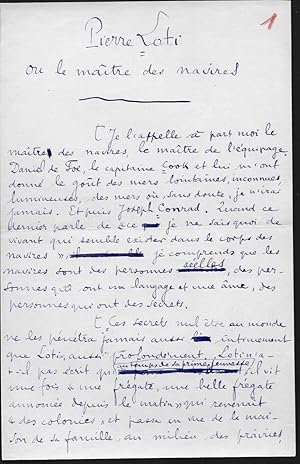 1
Pierre Loti
ou le maître des navires
[Je l'appelle à part moi le
maître des navires, le maître de l'équipage.
Daniel de Foë, le capitaine Cook et lui m'ont
donné le goût des mers lointaines, inconnues
lumineuses, des mers où, sans doute, je n'irai
jamais. Et puis Joseph Conrad. Quand ce
dernier parle de « ce je ne sais quoi de
vivant qui semble exister dans le corps des
navires », je comprends que les
navires sont des personnes réelles, des per-
sonnes qui ont un langage et une âme, des
personnes qui ont des secrets.
[Ces secrets nul être au monde
ne les pénétra jamais aussi intimement
que Loti, aussi profondément. Loti n'a-
t-il pas écrit qu' au temps de sa prime jeunesse, il vit
une fois « une frégate, une belle frégate
annoncée depuis le matin » qui revenait
« des colonies », et passa en vue de la mai-
son de sa famille, au milieu des prairies,